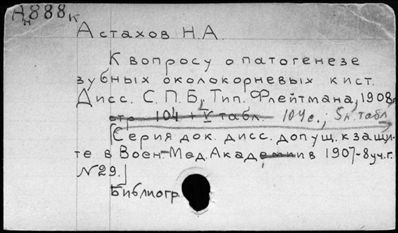 Ан888к
Астахов Н.А
К вопросу о патогенезе
зубных околокорневых кист.
Дисс. С.П.Б, Тип. Флейтмана, 1908.
стр. 104 + V табл. 104 с.; 5 л. табл
(Серия док. дисс. допущ. к защи-
те в Воен-Мед. Академии в 1907-8 уч. г.
№29.)
Библиогр.